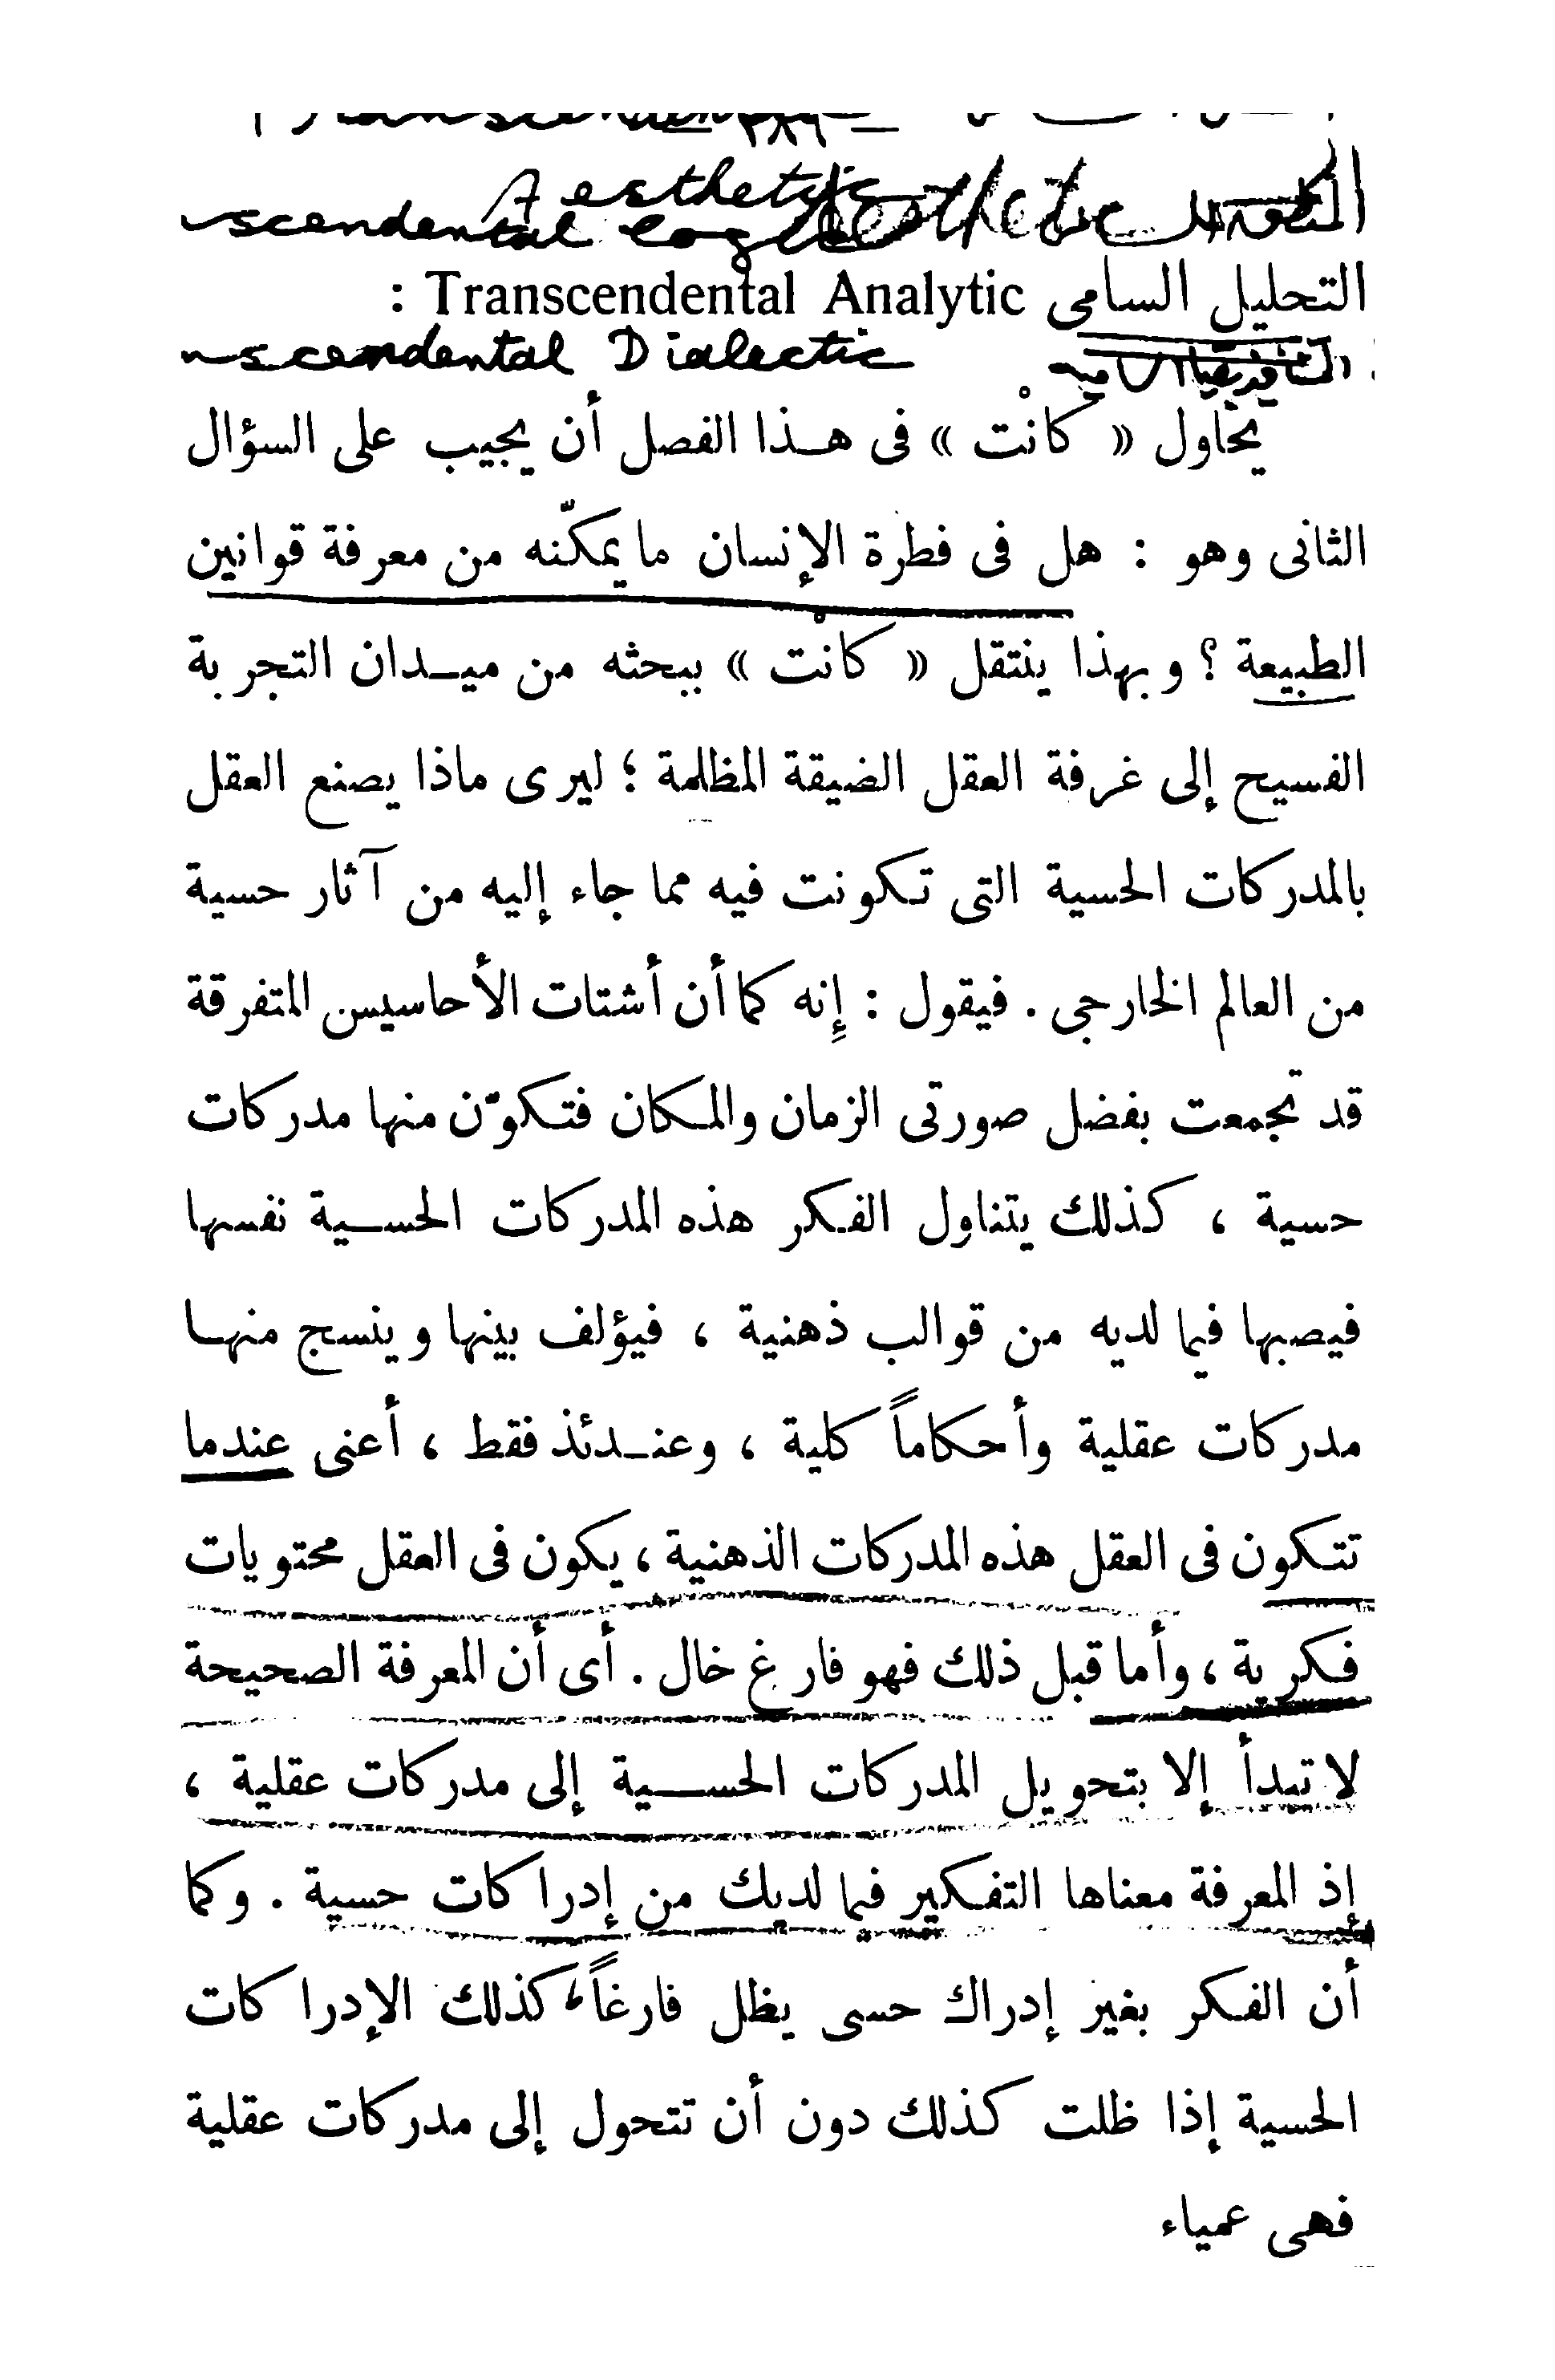 Aesthetic
scendental logic Aesthetic
التحليل السامى Transcendental Analytic :
nscendental Dialectic
يحاول « كانْت » فى هـذا الفصل أن يجيب على السؤال
الثانى وهو : هل فى فطرة الإنسان ما يمكّنه من معرفة قوانين
الطبيعة ؟ وبهذا ينتقل « كانْت » ببحثه من ميـدان التجربة
الفسيح إلى غرفة العقل الضيقة المظلمة ؛ ليرى ماذا يصنع العقل
بالمدركات الحسية التى تكونت فيه مما جاء إليه من آثار حسية
من العالم الخارجى . فيقول : إِنه كما أن أشتات الأحاسيس المتفرقة
قد تجمعت بفضل صورتى الزمان والمكان فتكوّن منها مدركات
حسية ، كذلك يتناول الفكر هذه المدركات الحسـية نفسها
فيصبها فيما لديه من قوالب ذهنية ، فيؤلف بينها وينسج منهـا
مدركات عقلية وأحكاماً كلية ، وعنـدئذ فقط ، أعنى عندما
تتكون فى العقل هذه المدركات الذهنية ، يكون فى العقل محتويات
فكرية ، وأما قبل ذلك فهو فارغ خال . أى أن المعرفة الصحيحة
لا تبدأ إلا بتحويل المدركات الحســية إلى مدركات عقلية ،
إذ المعرفة معناها التفكير فيما لديك من إدراكات حسية . وكما
أن الفكر بغير إدراك حسى يظل فارغاً ، كذلك الإدراكات
الحسية إذا ظلت كذلك دون أن تتحول إلى مدركات عقلية
فهى عمياء